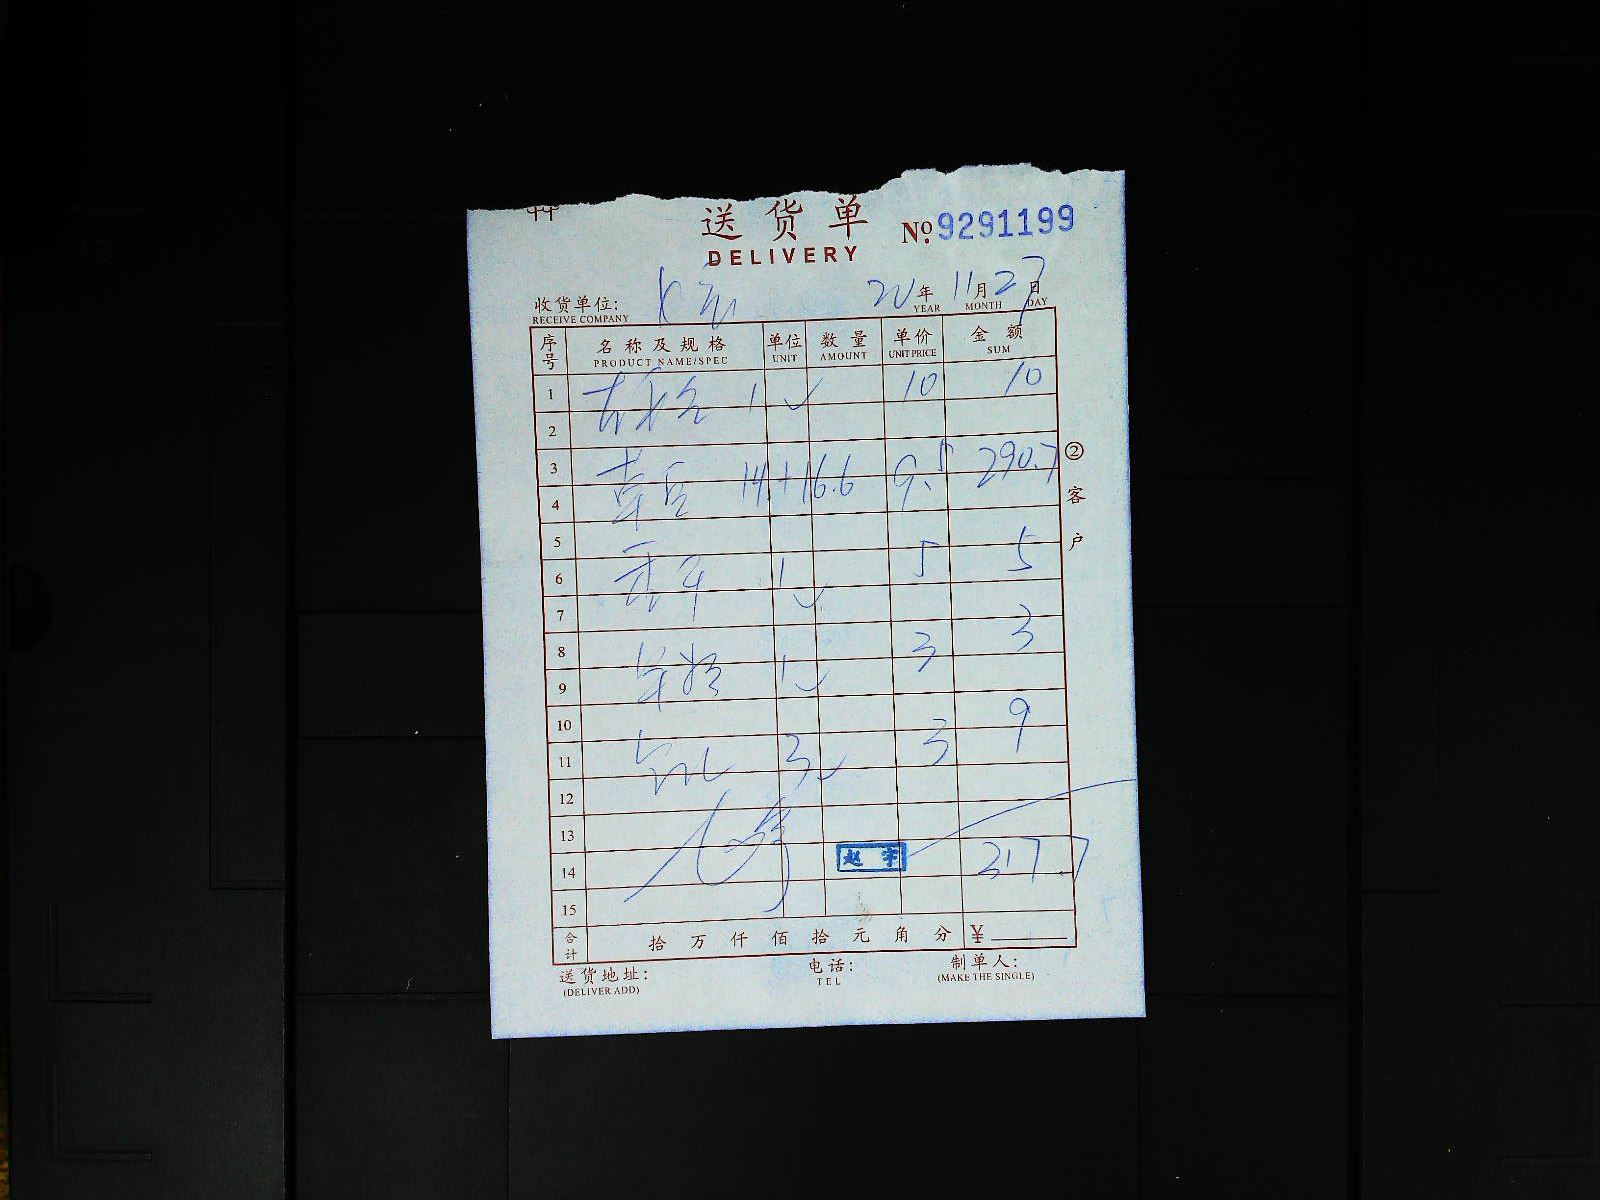 送货单
DELIVERY
№ 9291199
收货单位:
RECEIVE COMPANY
20年 11月 27日
YEAR MONTH DAY
序号 名称及规格 单位 数量 单价 金额
PRODUCT NAME/SPEC UNIT AMOUNT UNIT PRICE SUM
1 1 10 10
2
3 14+16.6 9.5 290.7
4
5
6 1 5 5
7
8 1 3 3
9
10
11 3 3 9
12
13
14 赵宇 317.7
15
合计 拾 万 仟 佰 拾 元 角 分 ¥
② 客户
送货地址: 电话: 制单人:
(DELIVER ADD) TEL (MAKE THE SINGLE)